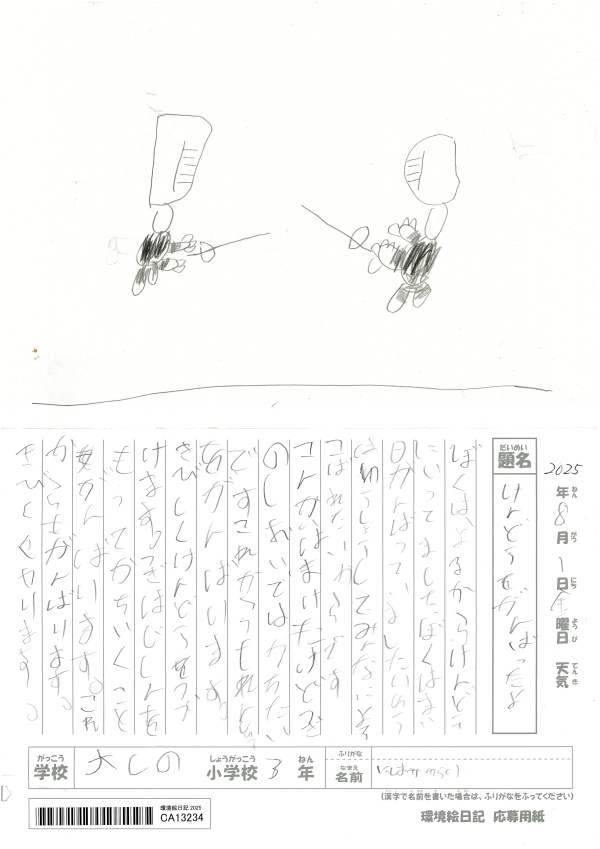 2025年8月1日金曜日 天気
ねん がつ にち ようび てんき
だいめい
題名
けんどうをがんばったよ
ぼくは、よるからけんどう
にいってましたぼくはまい
日がんばっていました
してみんなに
たいからです
こんかいはまけたけどで
のしあいではかちたい
ですこれからも
をがんばります。
きびしくけんどうをつづ
けます。つぎはじしんを
もってかちいくこと
をがんばります。これ
からもがんばります。
きびしくやります。
がっこう
学校
大しの
しょうがっこう
小学校
3
ねん
年
ふりがな
なまえ
名前
(漢字で名前を書いた場合は、ふりがなをふってください)
環境絵日記 2025
CA13234
環境絵日記 応募用紙